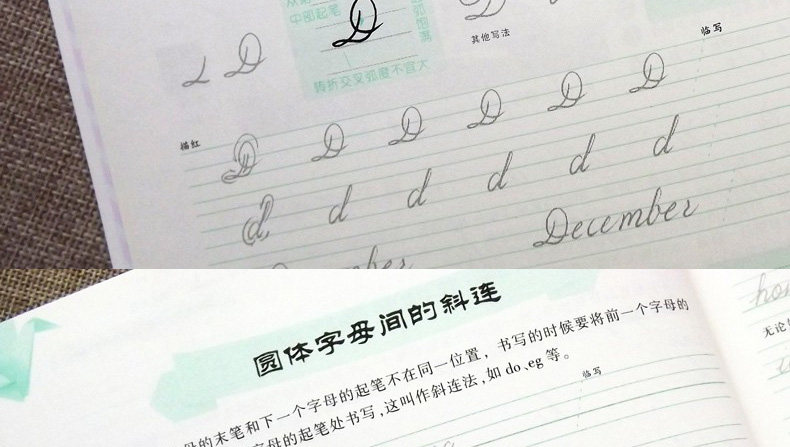 中部起笔
D
弧
饱
满
其他写法
临写
L D
转折交叉弧度不宜大
描红
D D D D D D
d d d d d d
December
圆体字母间的斜连
的末笔和下一个字母的起笔不在同一位置，书写的时候要将前一个字母的
字母的起笔处书写，这叫作斜连法，如 do、eg 等。
临写
无论